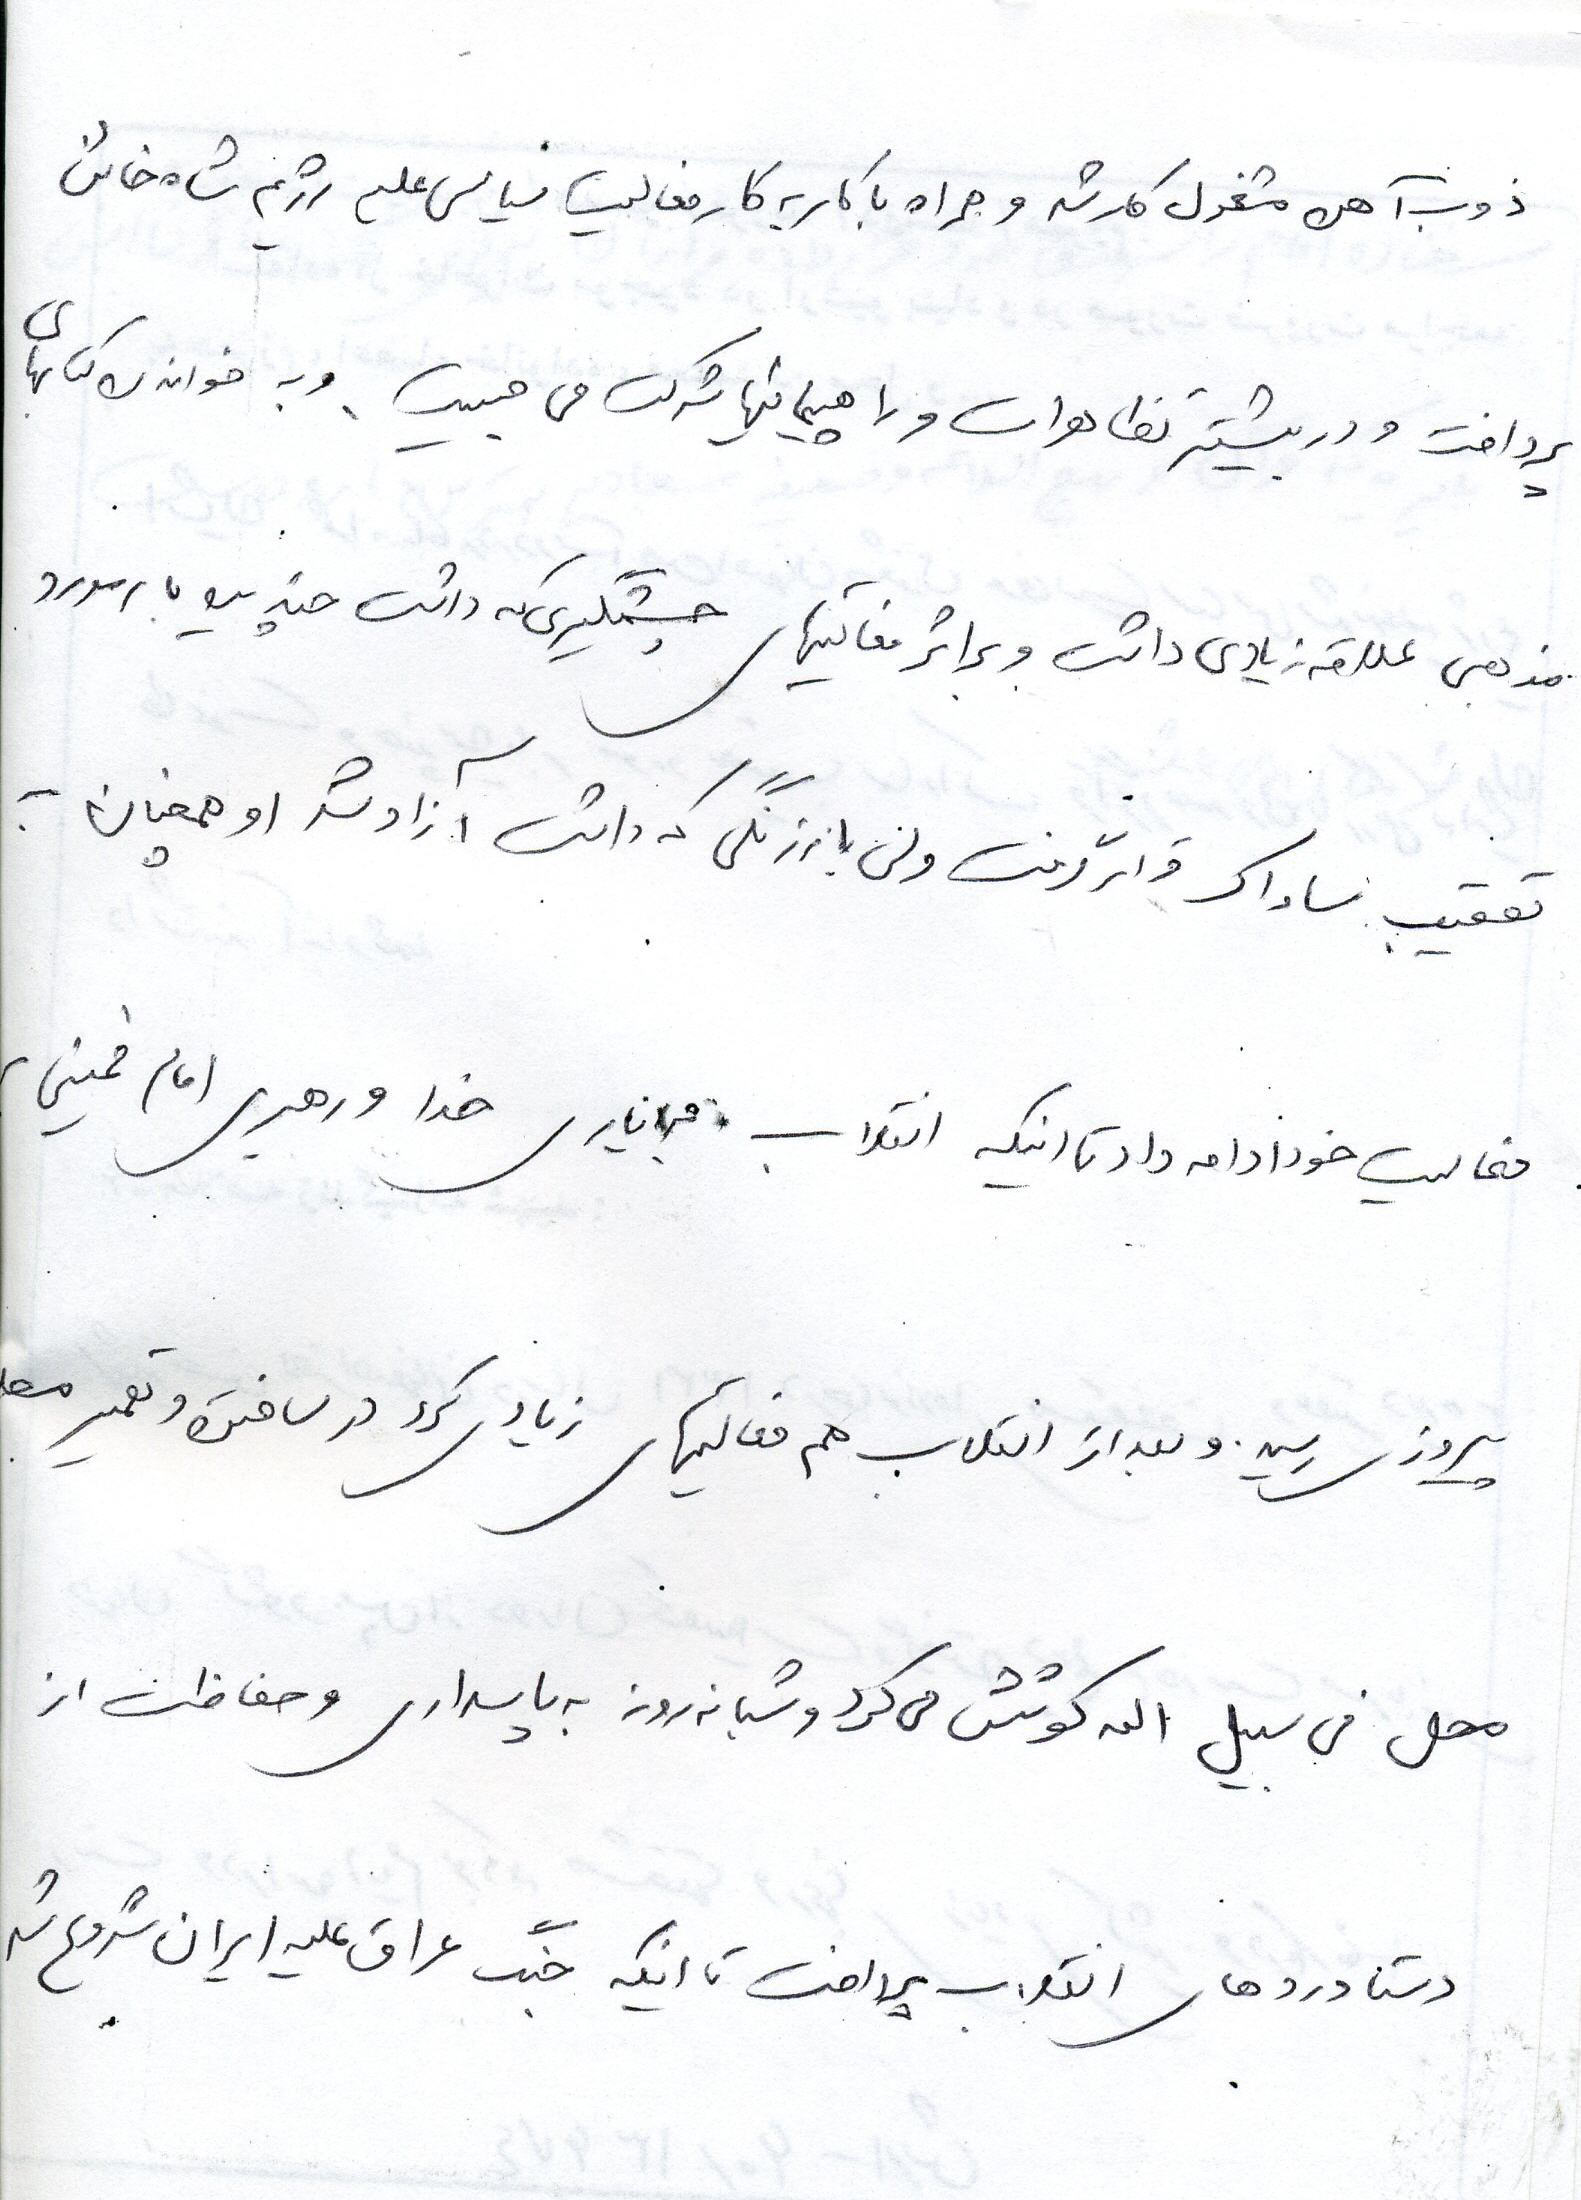 ذوب آهن مشغول کار شد و همراه با کار به کار فعالیت سیاسی علیه رژیم شاه خائن
پرداخت و در بیشتر تظاهرات و راهپیمائیها شرکت می جست و به خواندن کتابهای
مذهبی علاقه زیادی داشت و بر اثر فعالیتهای چشمگیری که داشت چندین بار مورد
تعقیب ساواک قرار گرفت ولی با زرنگی که داشت آزاد شد او همچنان به
فعالیت خود ادامه داد تا اینکه انقلاب با یاری خدا و رهبری امام خمینی
پیروزی رسید. و بعد از انقلاب هم فعالیتهای زیادی کرد در ساختن و تعمیر
محل فی سبیل اله کوشش می کرد و شبانه روز به پاسداری و حفاظت از
دستاوردهای انقلاب پرداخت تا اینکه جنگ عراق علیه ایران شروع شد